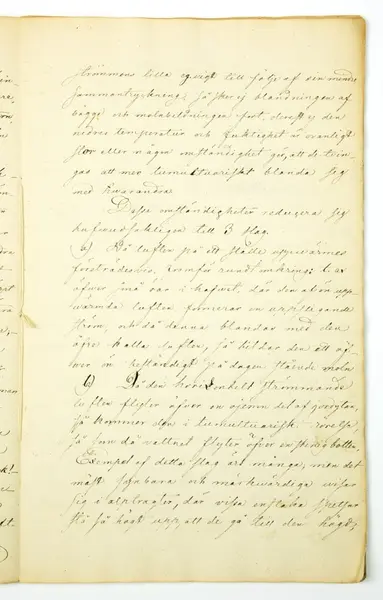 strömmens lilla egvigt till följe af den mindre
sammantryckning, så sker ej blandningen af
bägge och molnbildningen fort, derest ej den
nedres temperatur och fuktighet är ovanligt
stor eller någon omständighet gör, att de tvin-
gas att med blanda sig
med hvarandra
Dessa omständigheter reducera sig
hufvudsakligen till 3 slag.
a) Då luften på ett ställe uppvärmes
företrädesvis, framför rundt omkring: t. ex.
öfver små öar i hafvet, där den af ön upp
wärmda luften formerar en uppstigande
ström, och då denna blandar med den
öfre kalla luften, så bildar den ett öf-
ver ön beständigt på dagen stående moln
b) Då den horizontelt strömmande
luften flyter öfver en ojemn del af jordytan,
så kommer den i tumultuarisk rörelse,
så som då vattnet flyter öfver en stenig botten.
Exempel af detta slag äro många, men det
mäst synbara och märkwärdiga wisar
sig i alptrakter, där vissa enstaka spetsar
stå så högt upp, att de gå till den högt